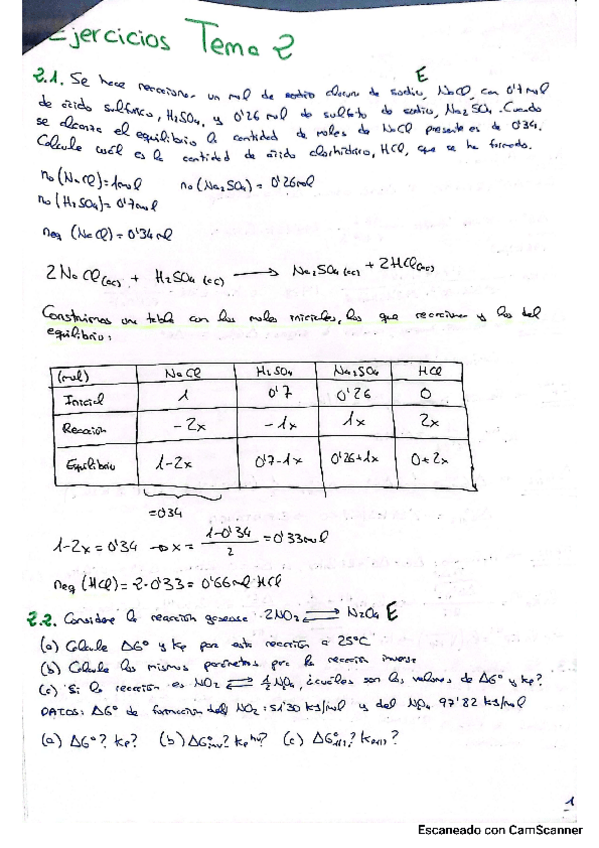 Ejercicios Tema 2
E
2.1. Se hace reaccionar un mol de cloruro de sodio, NaCl, con 0'7 mol
de ácido sulfúrico, H₂SO₄, y 0'26 mol de sulfato de sodio, Na₂SO₄. Cuando
se alcanza el equilibrio la cantidad de moles de NaCl presente es de 0'34.
Calcule cuál es la cantidad de ácido clorhídrico, HCl, que se ha formado.
n₀(NaCl)=1mol n₀(Na₂SO₄)= 0'26mol
n₀(H₂SO₄)=0'7mol
neq (NaCl)=0'34mol
2NaCl(ac) + H₂SO₄(ac) → Na₂SO₄(ac) + 2HCl(ac)
Construimos una tabla con los moles iniciales, los que reaccionan y los del
equilibrio:
(mol) NaCl H₂SO₄ Na₂SO₄ HCl
Inicial 1 0'7 0'26 0
Reacción -2x -1x 1x 2x
Equilibrio 1-2x 0'7-1x 0'26+1x 0+2x
=0'34
1-2x=0'34 → x= (1-0'34)/2 =0'33mol
neq (HCl)=2·0'33=0'66mol HCl
2.2. Considere la reacción gaseosa 2NO₂ ⇌ N₂O₄ E
(a) Calcule ΔG° y Kp para esta reacción a 25°C
(b) Calcule los mismos parámetros para la reacción inversa
(c) Si la reacción es NO₂ ⇌ ½N₂O₄, ¿cuáles son los valores de ΔG° y Kp?
DATOS: ΔG° de formación del NO₂: 51'30 kJ/mol y del N₂O₄ 97'82 kJ/mol
(a) ΔG°? Kp? (b) ΔG°inv? Kp inv? (c)
1
Escaneado con CamScanner